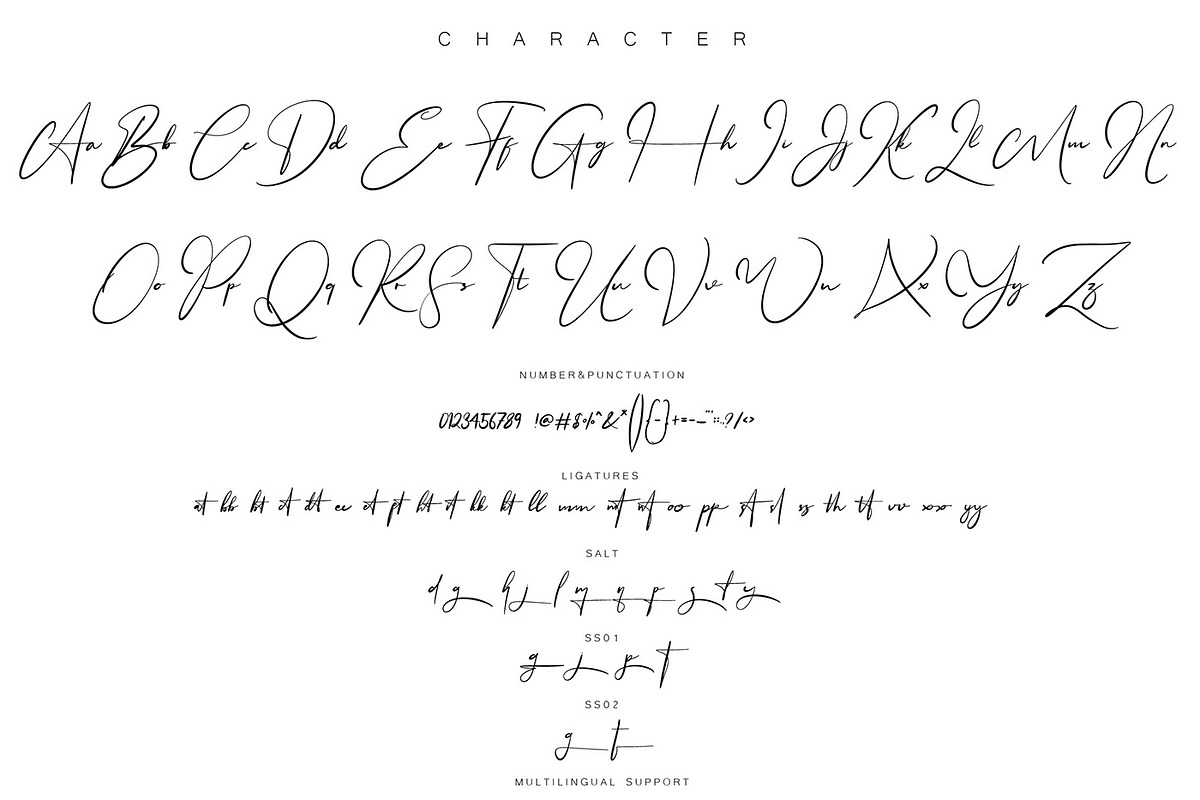 CHARACTER
Aa Bb Cc Dd Ee Ff Gg Hh Ii Jj Kk Ll Mm Nn
Oo Pp Qq Rr Ss Tt Uu Vv Ww Xx Yy Zz
NUMBER&PUNCTUATION
0123456789 !@#$%^&*(){-}+=-_
LIGATURES
at bb bt ct dt ee et ft ht it kk kt ll mm oo pp st sl ss th tf vv xx yy
SALT
d g h j l m n p s t y
SS01
g j p t
SS02
g t
MULTILINGUAL SUPPORT